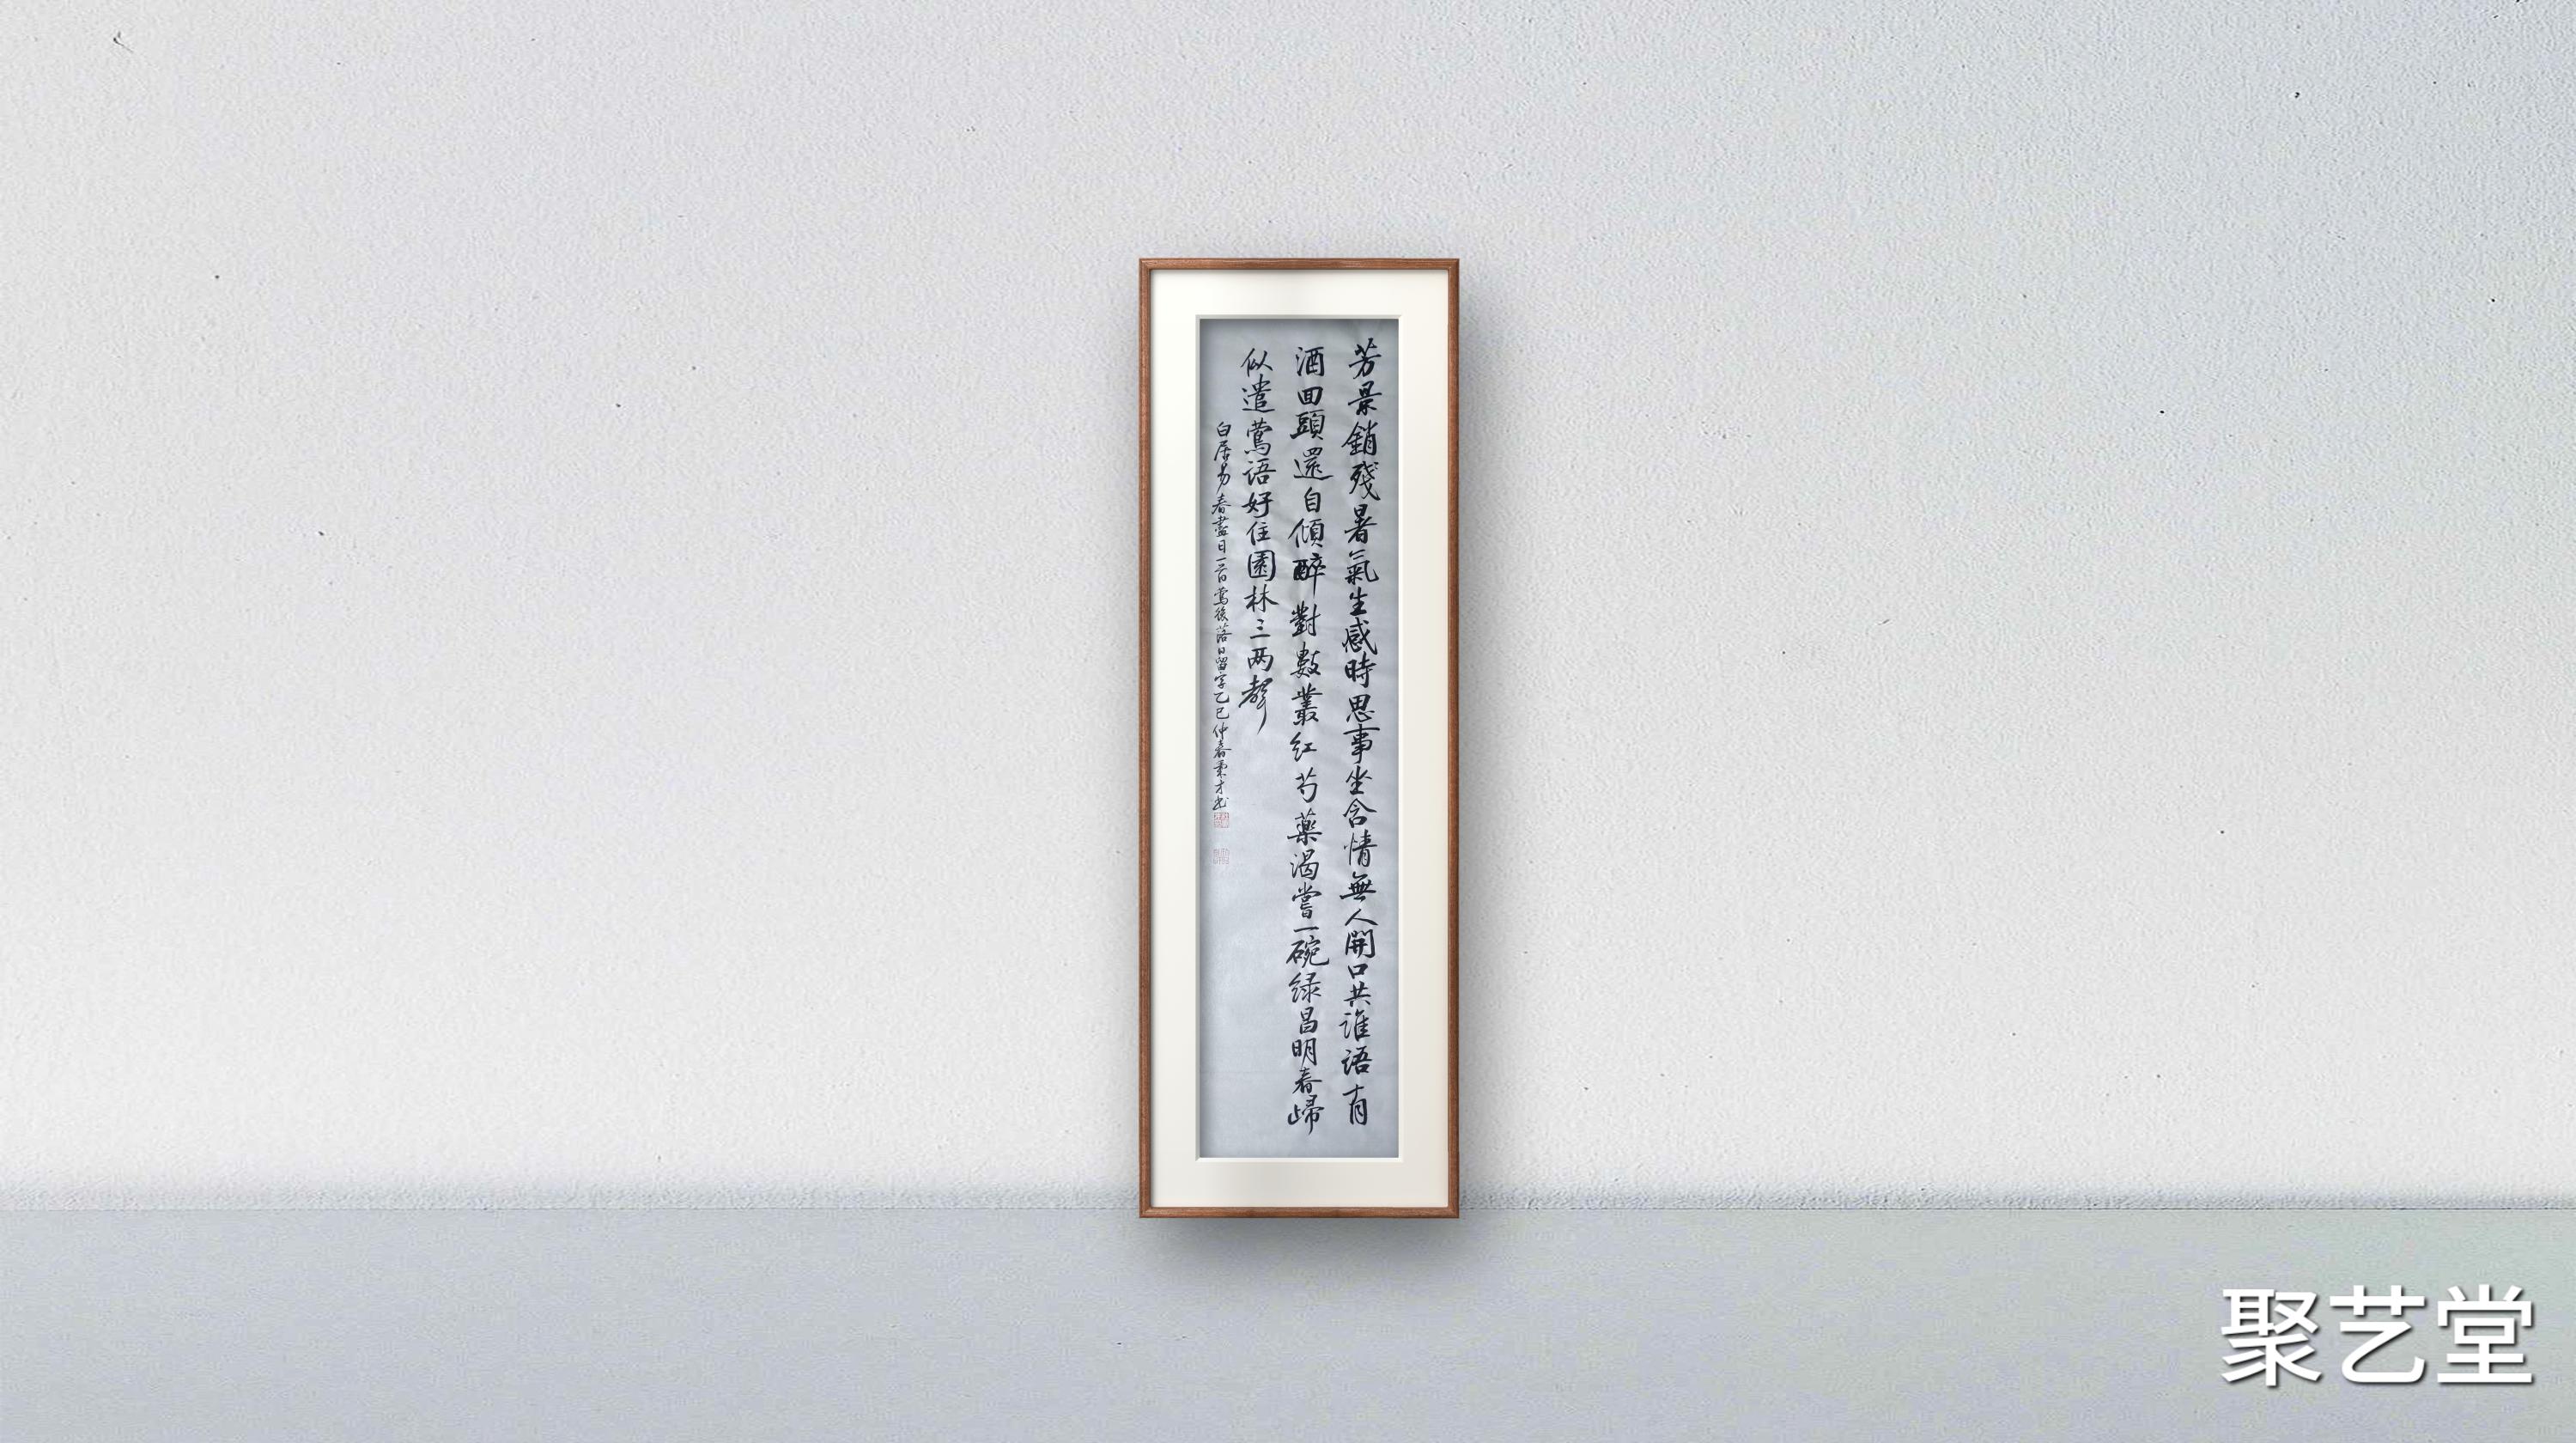 芳景銷殘暑氣生感時思事坐含情無人開口共谁语有
酒回頭還自傾醉對數叢红芍藥渴嘗一碗绿昌明春歸
似遣莺语好住園林三两聲
白居易春盡日一首莺後落日留字乙巳仲春才书
聚艺堂